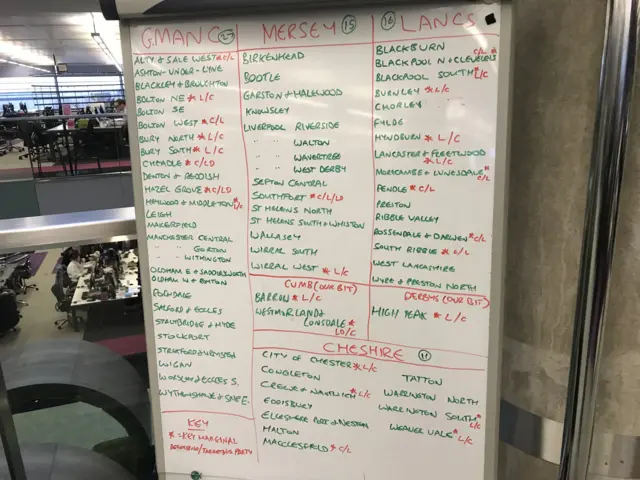 G.MANC 27
ALTY & SALE WEST * C/L
ASHTON-UNDER-LYNE
BLACKLEY & BROUGHTON
BOLTON NE * L/C
BOLTON SE
BOLTON WEST * C/L
BURY NORTH * L/C
BURY SOUTH * L/C
CHEADLE * C/LD
DENTON & REDDISH
HAZEL GROVE * C/LD
HEYWOOD & MIDDLETON * L/C
LEIGH
MAKERFIELD
MANCHESTER CENTRAL
" " GORTON
" " WITHINGTON
OLDHAM E & SADDLEWORTH
OLDHAM W & ROYTON
ROCHDALE
SALFORD & ECCLES
STALYBRIDGE & HYDE
STOCKPORT
STRETFORD & URMSTON
WIGAN
WORSLEY & ECCLES S.
WYTHENSHAWE & SALE E.
KEY
* = KEY MARGINAL
DEFENDING/TARGETING PARTY
MERSEY 15
BIRKENHEAD
BOOTLE
GARSTON & HALEWOOD
KNOWSLEY
LIVERPOOL RIVERSIDE
" " WALTON
" " WAVERTREE
" " WEST DERBY
SEFTON CENTRAL
SOUTHPORT * C/L/LD
ST HELENS NORTH
ST HELENS SOUTH & WHISTON
WALLASEY
WIRRAL SOUTH
WIRRAL WEST * L/C
CUMB (OUR BIT)
BARROW * L/C
WESTMORLAND &
LONSDALE *
LD/C
16 LANCS
BLACKBURN
BLACKPOOL N & CLEVELEYS C/L *
BLACKPOOL SOUTH * L/C
BURNLEY * L/C
CHORLEY
FYLDE
HYNDBURN * L/C
LANCASTER & FLEETWOOD
* L/C
MORECAMBE & LUNESDALE * C/L
PENDLE * C/L
PRESTON
RIBBLE VALLEY
ROSSENDALE & DARWEN * C/L
SOUTH RIBBLE * C/L
WEST LANCASHIRE
WYRE & PRESTON NORTH
DERBYS (OUR BIT)
HIGH PEAK * L/C
CHESHIRE 11
CITY OF CHESTER * L/C
CONGLETON
CREWE & NANTWICH * L/C
EDDISBURY
ELLESMERE PORT & NESTON
HALTON
MACCLESFIELD * C/L
TATTON
WARRINGTON NORTH
WARRINGTON SOUTH * L/C
WEAVER VALE * L/C